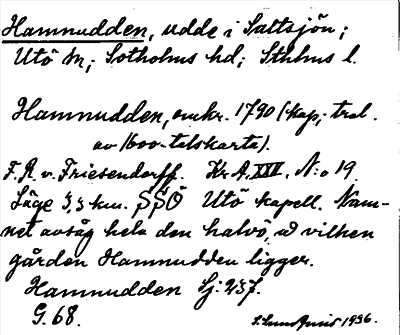 Hamnudden, udde i Saltsjön;
Utö sn; Sotholms hd; Sthlms l.
Hamnudden, omkr. 1790 (kap; trol.
av 1600-talskarta).
F. A. v. Friesendorff. Kr. A. XVI, N:o 19.
Läge 3,3 km. SSÖ Utö kapell. Nam-
net avsåg hela den halvö, å vilken
gården Hamnudden ligger.
Hamnudden Sj: 237.
G. 68.
1936.